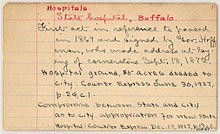 Hospitals
State hospital, Buffalo.
First act in reference to passed
in 1869 and signed by Gov. Hoff
man, who made address at lay
ing of cornerstone Sept. 18, 1872
Hospital grounds, 85 acres deeded to
City. Courier Express June 30, 1927,
p. 24, c. 1.
Compromise between State and City
as to city appropriation for new State
Hospital. Courier Express Dec. 17, 1927,